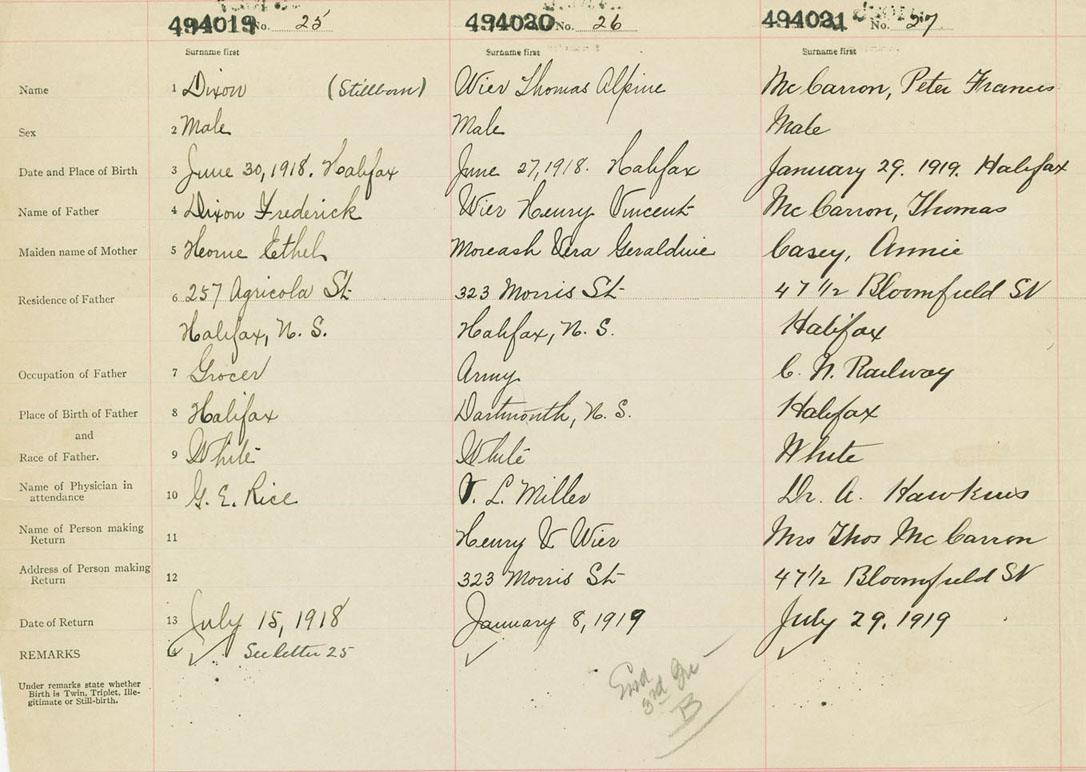 494019 No. 25 494020 No. 26 494021 No. 27
Surname first Surname first Surname first
Name 1 Dixon (Stillborn) Wier Thomas Alpine McCarron, Peter Francis
Sex 2 Male Male Male
Date and Place of Birth 3 June 30, 1918. Halifax June 27, 1918. Halifax January 29. 1919. Halifax
Name of Father 4 Dixon Frederick Wier Henry Vincent McCarron, Thomas
Maiden name of Mother 5 Horne Ethel Moreash Vera Geraldine Casey, Annie
Residence of Father 6 257 Agricola St 323 Morris St 47 1/2 Bloomfield St
Halifax, N. S. Halifax, N. S. Halifax
Occupation of Father 7 Grocer Army C. N. Railway
Place of Birth of Father 8 Halifax Dartmouth, N. S. Halifax
and
Race of Father. 9 White White White
Name of Physician in
attendance 10 G. E. Rice V. L. Miller Dr. A. Hawkins
Name of Person making
Return 11 Henry V Wier Mrs Thos McCarron
Address of Person making
Return 12 323 Morris St 47 1/2 Bloomfield St
Date of Return 13 July 15, 1918 January 8, 1919 July 29. 1919
REMARKS See letter 25
Under remarks state whether
Birth is Twin, Triplet, Ille-
gitimate or Still-birth.
End
3rd
B